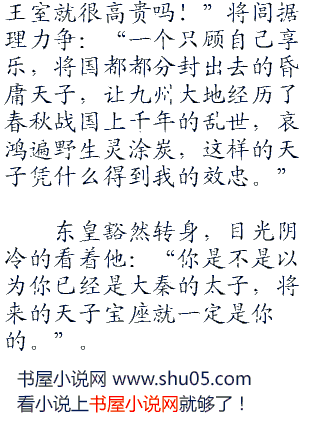 王室就很高贵吗！”将闾据
理力争：“一个只顾自己享
乐，将国都都分封出去的昏
庸天子，让九州大地经历了
春秋战国上千年的乱世，哀
鸿遍野生灵涂炭，这样的天
子凭什么得到我的效忠。”
东皇豁然转身，目光阴
冷的看着他：“你是不是以
为你已经是大秦的太子，将
来的天子宝座就一定是你
的。”。
书屋小说网 www.shu05.com
看小说上书屋小说网就够了！